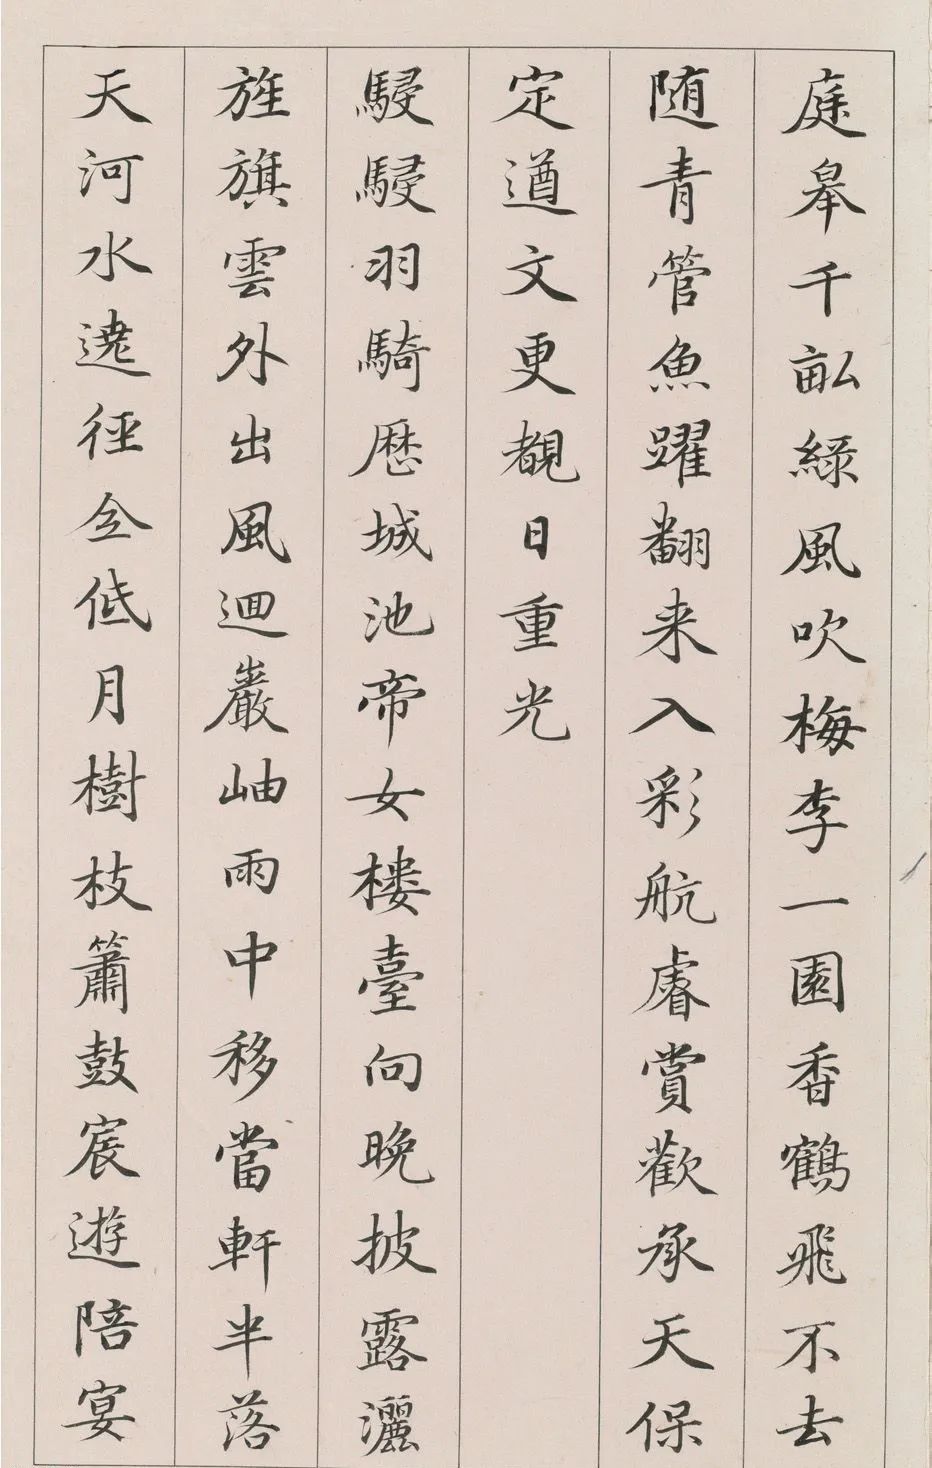 庭皋千畆綠風吹梅李一園香鶴飛不去
随青管魚躍翻来入彩航睿賞歡承天保
定遒文更覩日重光
駸駸羽騎歴城池帝女楼臺向晚披露灑
旌旗雲外出風迴巖岫雨中移當軒半落
天河水遶徑全低月樹枝簫鼓宸遊陪宴